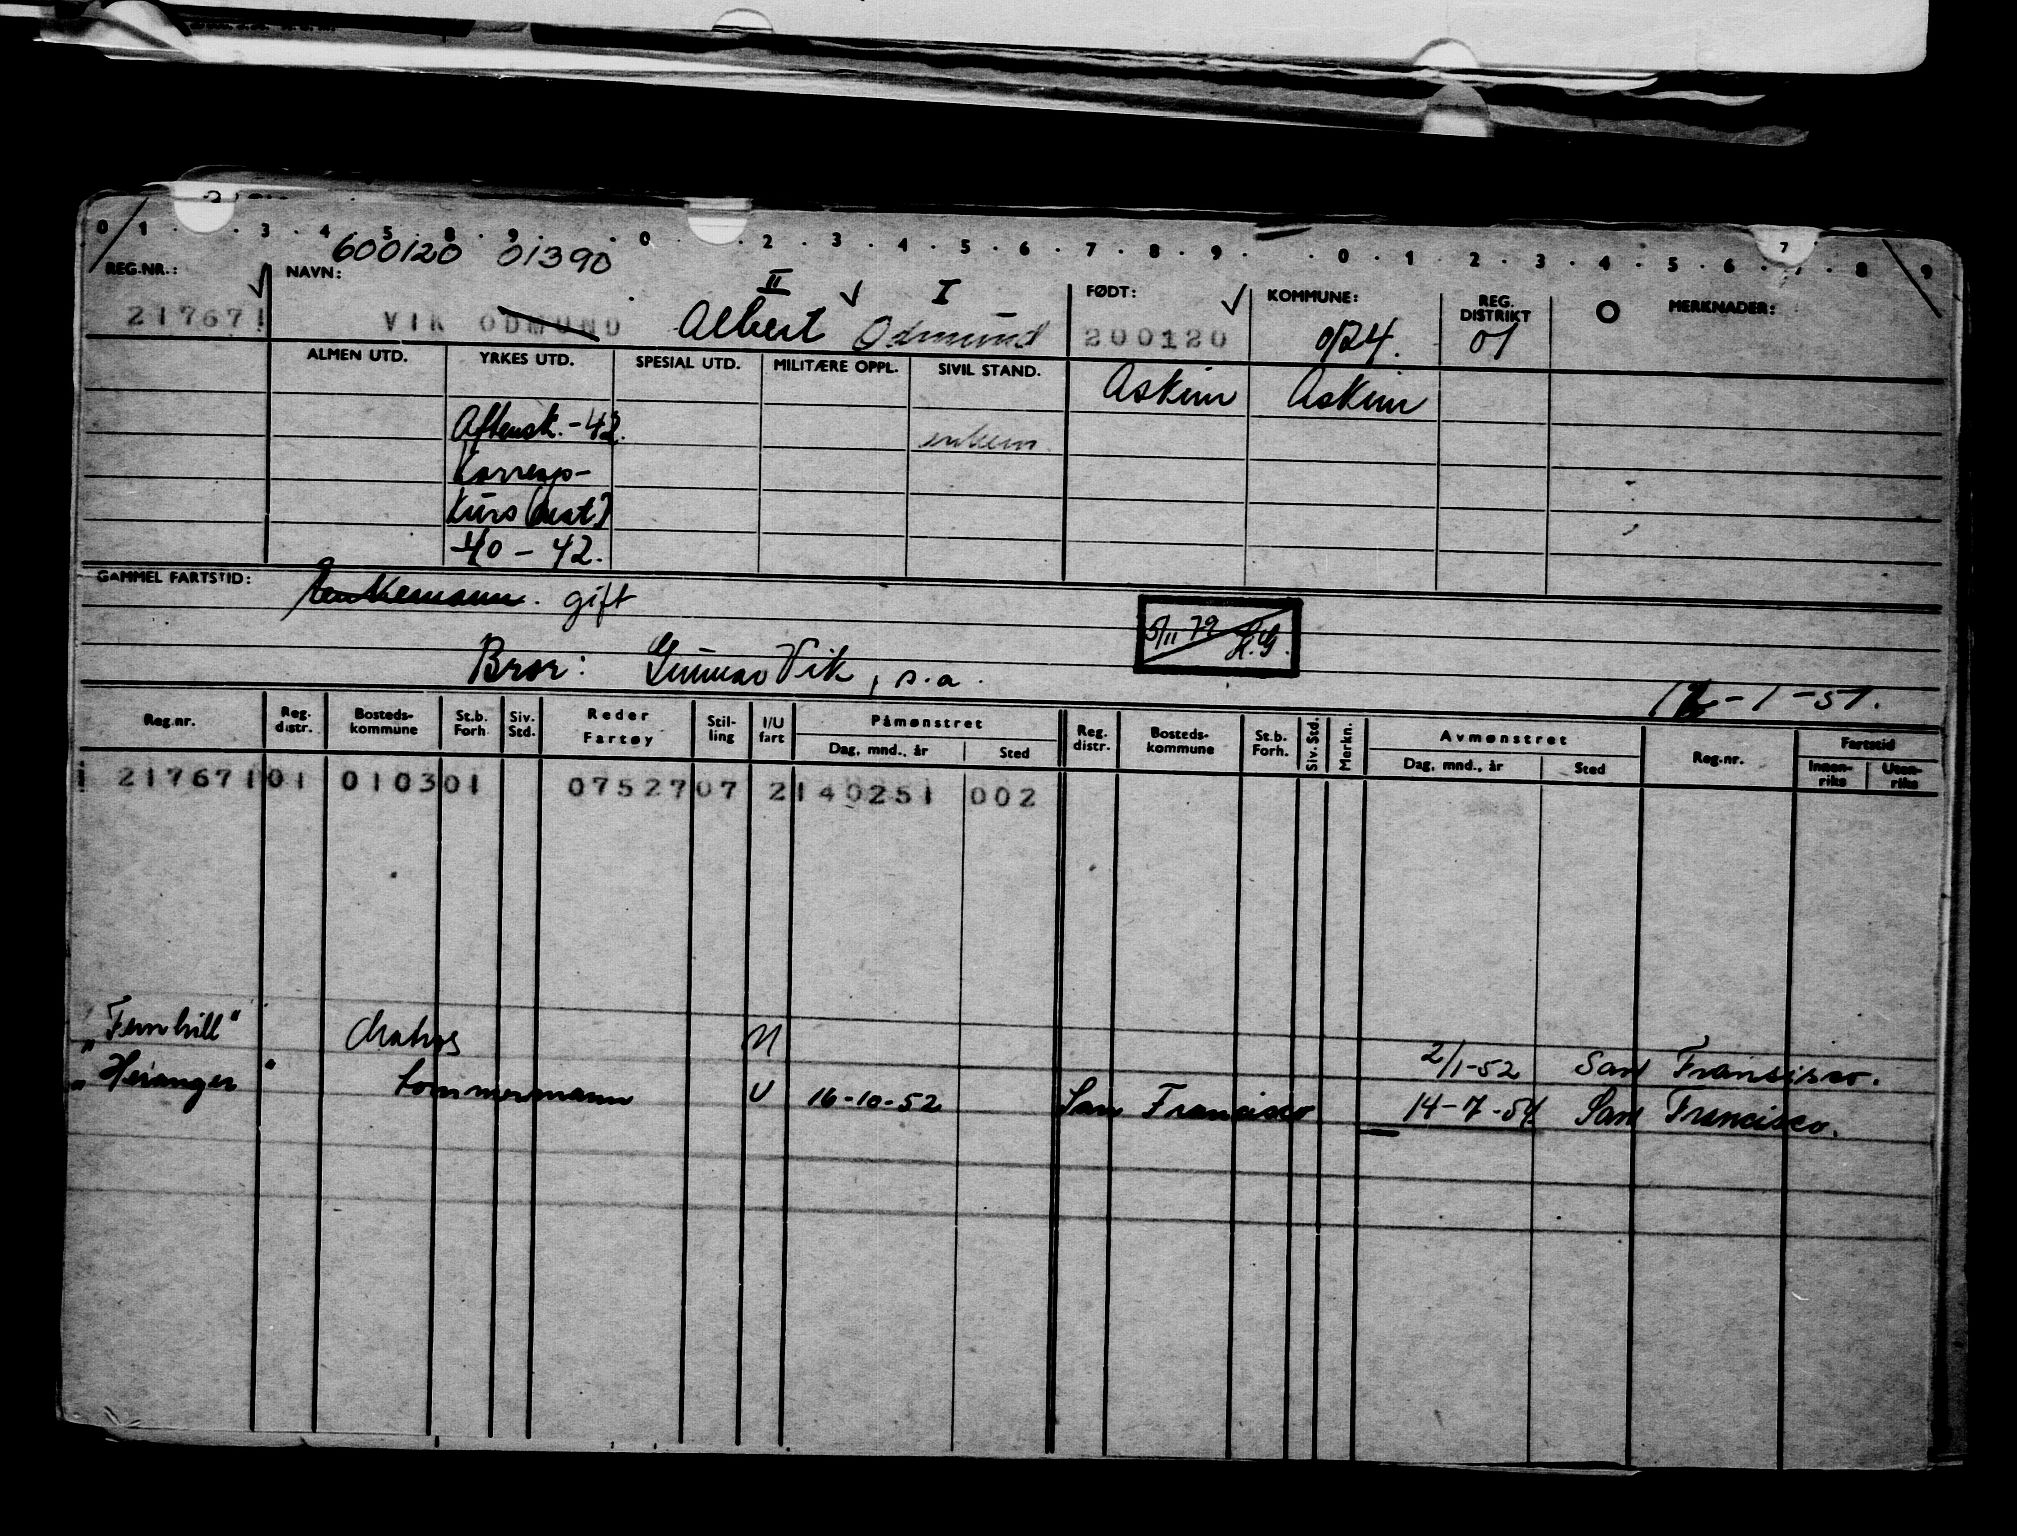 0 1 . . 3 . 4 . 5 . 8 . 9 . . 0 . . 2 . 3 . 4 . 5 . 6 . 7 . 8 . 9 . . 0 . 1 . 2 . 3 . 4 . 5 . 6 . 7 . 8 . 9
600120 01390
REG.NR.: NAVN: II I FØDT: KOMMUNE: REG. DISTRIKT O MERKNADER:
217671 VIK ODMUND Albert Odmund 200120 0124. 01
ALMEN UTD. YRKES UTD. SPESIAL UTD. MILITÆRE OPPL. SIVIL STAND. Askim Askim
Aftensk. - 42. enkem.
Korresp-
Kurs (mat)
40 - 42.
GAMMEL FARTSTID: Enkemann. gift
5/11 79 H.G.
Bror: Gunnar Vik, s.a.
12-1-51.
Reg.nr. Reg. distr. Bosteds-kommune St.b. Forh. Siv. Std. Reder Fartøy Stil-ling I/U fart Påmønstret Dag, mnd., år Sted Reg. distr. Bosteds-kommune St.b. Forh. Siv. Std. Merkn. Avmønstret Dag, mnd., år Sted Reg.nr. Fartstid Innen-riks Uten-riks
217671 01 0103 01 07527 07 2 140251 002
"Fernhill" Matros U 2/1-52 San Fransisco.
"Heranger" tømmermann U 16-10-52 San Francisco 14-7-54 San Francisco.